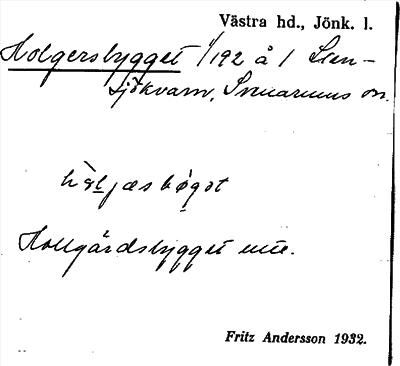 Västra hd., Jönk. l.
Holgersbygget 1/192 å 1 Sten-
sjökvarn, Svenarums sn.
Hollgårdsbygget ute.
Fritz Andersson 1932.